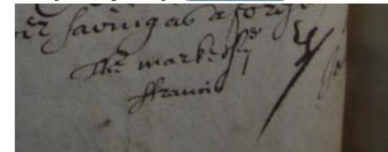 saving as afore
The marke of
ffrancis